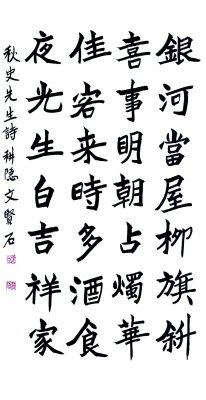 銀河當屋柳旗斜
喜事明朝占燭華
佳客来時多酒食
夜光生白吉祥家
秋史先生詩 科隐 文賢石